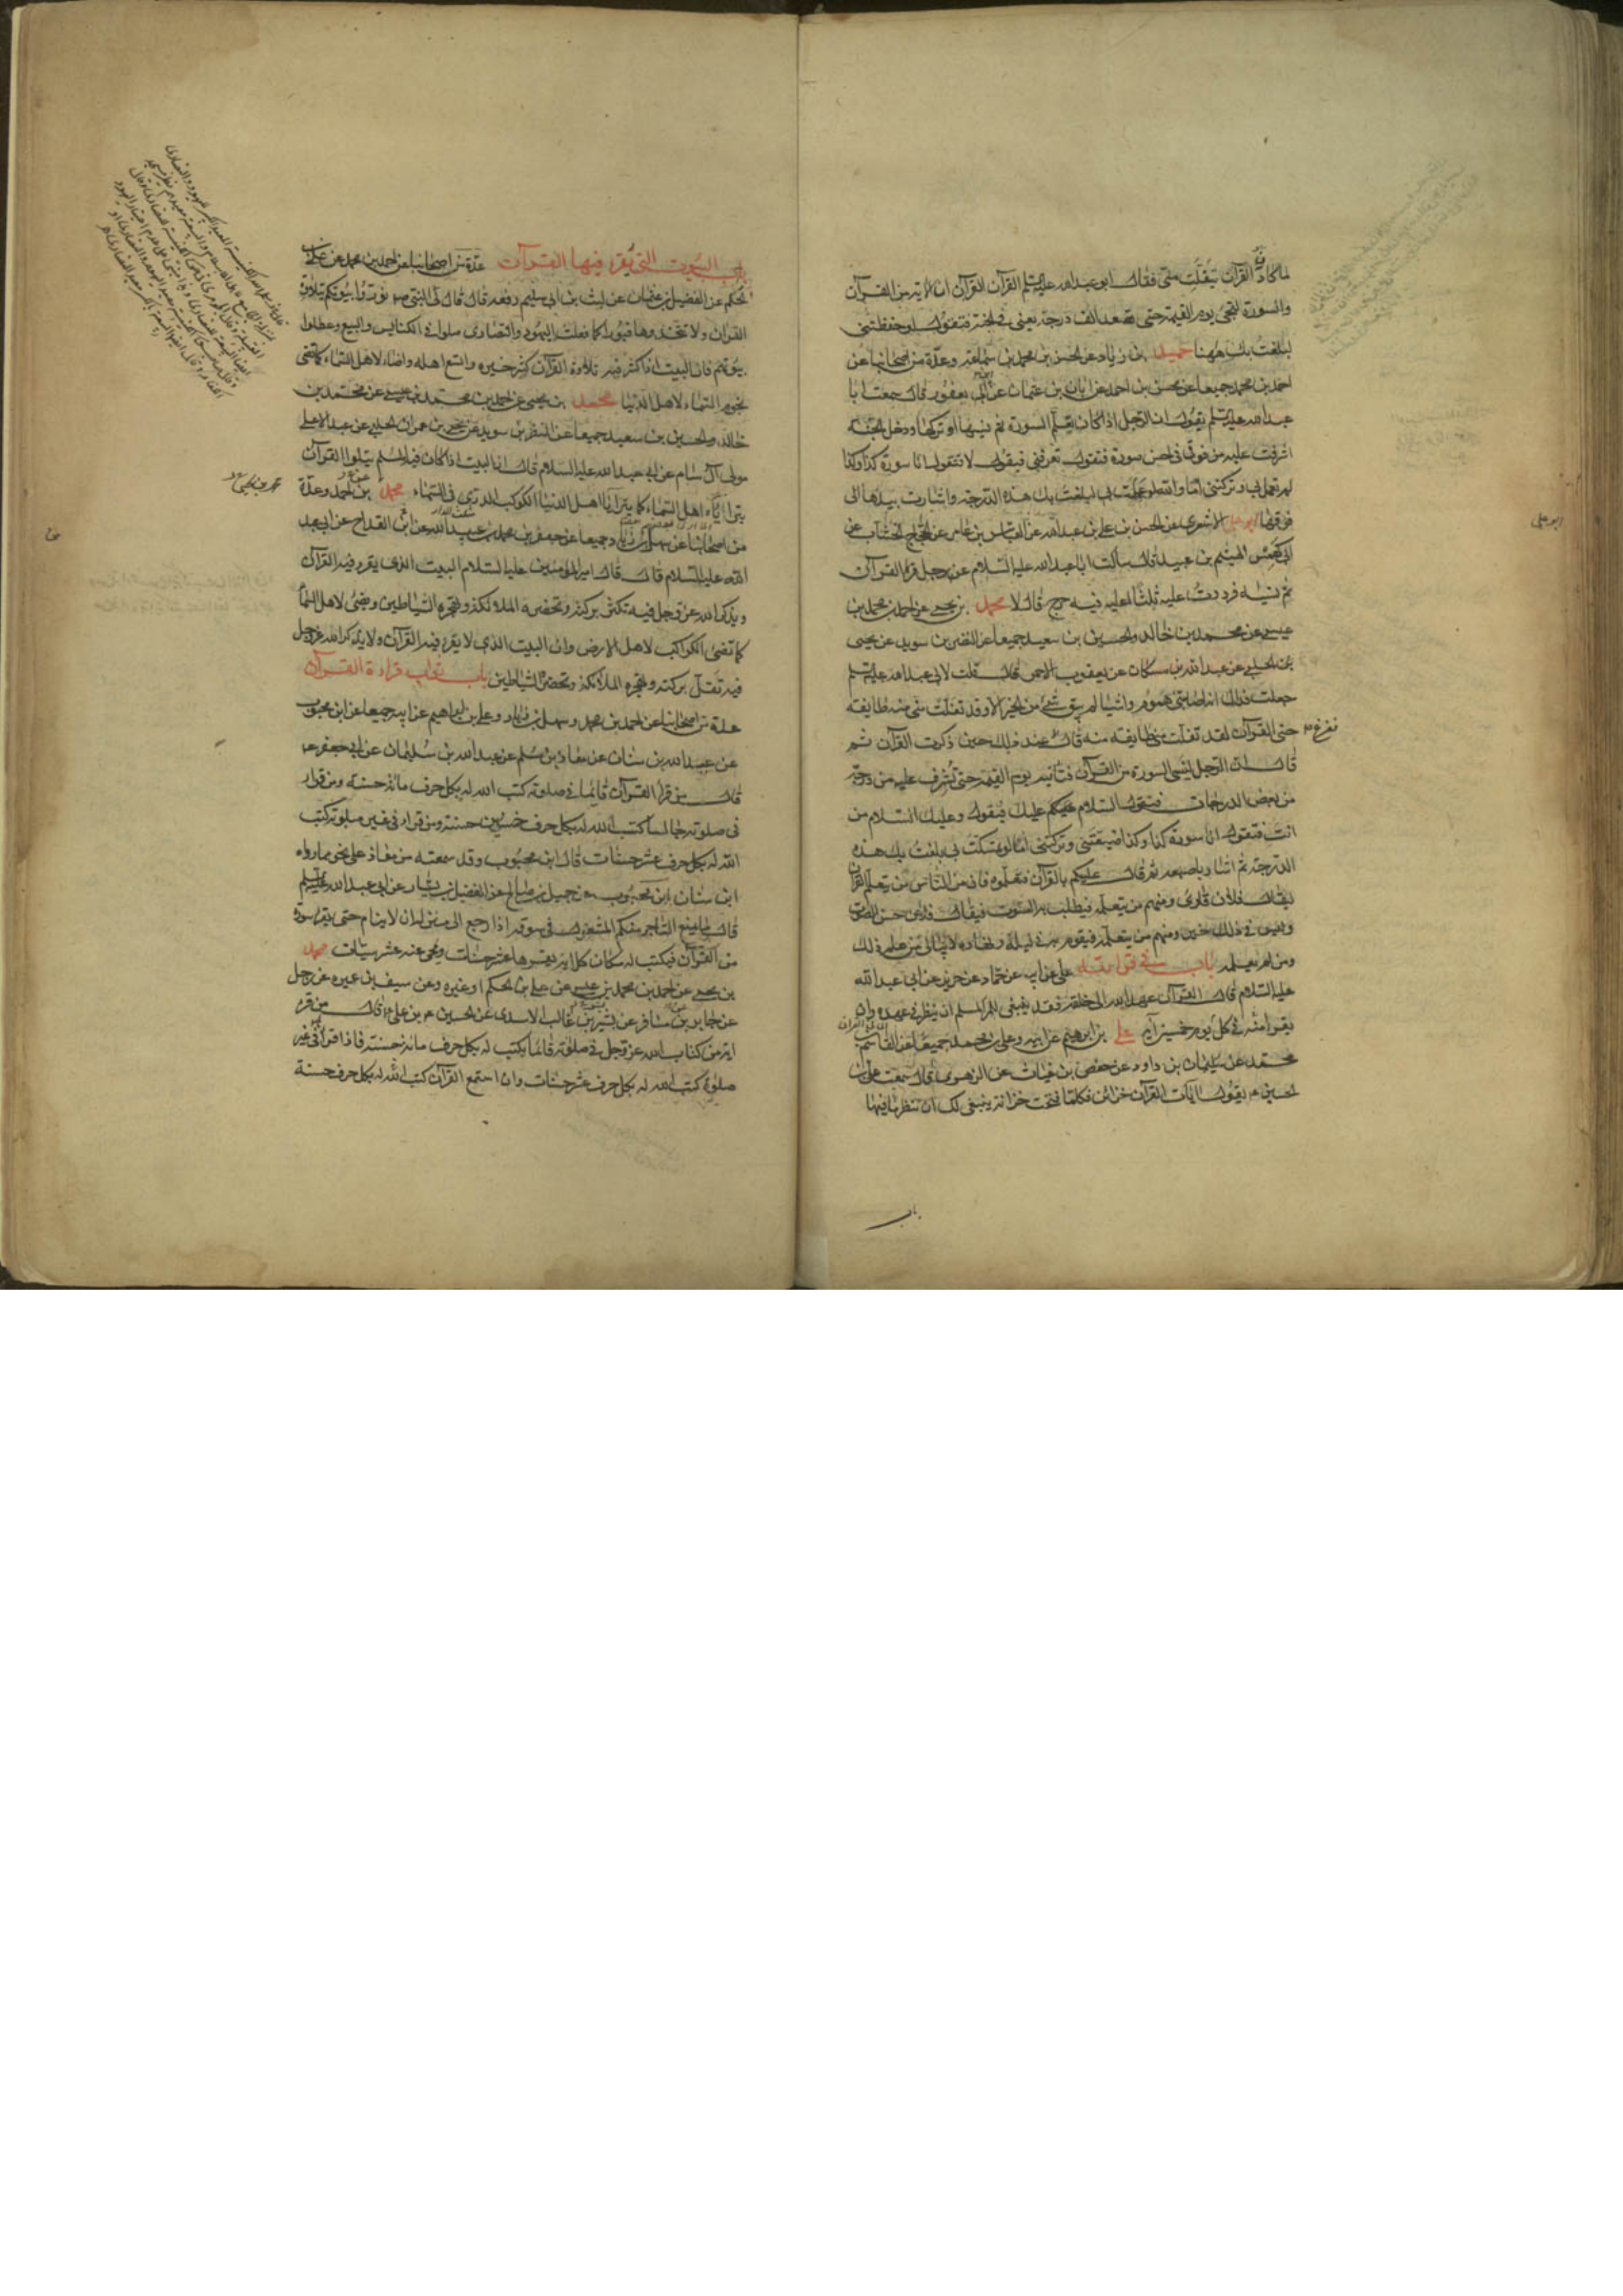 لماكاد القرآن يتفلت منى فقال ابو عبد الله عليه السلم القرآن القرآن ان الاية من القرآن
والسورة لتجى يوم القيمة حتى تصعد الف درجة يعنى فى الجنة فتقول لو حفظتنى
لبلغت بك ههنا حميد بن زياد عن الحسن بن محمد بن سماعة وعدة من اصحابنا عن
احمد بن محمد جميعا عن محسن بن احمد عن ابان بن عثمان عن ابن ابى يعفور قال سمعت ابا
عبد الله عليه السلم يقول ان الرجل اذا كان يعلم السورة ثم نسيها او تركها ودخل الجنة
اشرفت عليه من فوق فى احسن صورة فتقول تعرفنى فيقول لا فتقول انا سورة كذا وكذا
لم تعمل بى وتركتنى اما والله لو عملت بى لبلغت بك هذه الدرجة واشارت بيدها الى
فوقها ابو على الاشعرى عن الحسن بن على بن عبد الله عن العباس بن عامر عن الحجاج الخشاب عن
ابى كهمس الهيثم بن عبيد قال سالت ابا عبد الله عليه السلام عن رجل قرا القرآن
ثم نسيه فرددت عليه ثلثا اعليه فيه حرج قال لا محمد بن يحيى عن احمد بن محمد بن
عيسى عن محمد بن خالد والحسين بن سعيد جميعا عن النضر بن سويد عن يحيى
بن الحلبى عن عبد الله بن مسكان عن يعقوب الاحمر قال قلت لابى عبد الله عليه السلم
جعلت فداك انه اصابتنى هموم واشياء لم يبق شئ من الخير الا وقد تفلت منى منه طايفة
حتى القرآن لقد تفلت منى طايفة منه قال عند ذلك حين ذكرت القرآن ثم
قال ان الرجل لينسى السورة من القرآن فتاتيه يوم القيمة حتى تشرف عليه من درجة
من بعض الدرجات فتقول السلام عليك فيقول وعليك السلام من
انت فتقول انا سورة كذا وكذا ضيعتنى وتركتنى اما لو تمسكت بى بلغت بك هذه
الدرجة ثم اشار باصبعه ثم قال عليكم بالقرآن فتعلموه فان من الناس من يتعلم القرآن
ليقال فلان قارئ ومنهم من يتعلمه فيطلب به الصوت فيقال فلان حسن الصوت
وليس فى ذلك خير ومنهم من يتعلمه فيقوم به فى ليله ونهاره لا يبالى من علم ذلك
ومن لم يعلمه باب فى قرائته على عن ابيه عن حماد عن حريز عن ابى عبد الله
عليه السلام قال القرآن عهد الله الى خلقه فقد ينبغى للمرء المسلم ان ينظر فى عهده وان
يقرا منه فى كل يوم خمسين آية على بن ابرهيم عن ابيه وعلى بن محمد جميعا عن القاسم بن
محمد عن سليمان بن داود عن حفص بن غياث عن الزهرى قال سمعت على بن
الحسين ع يقول آيات القرآن خزائن فكلما فتحت خزانة ينبغى لك ان تنظر ما فيها
ابو على
باب
باب البيوت التى يقرء فيها القرآن عدة من اصحابنا عن احمد بن محمد عن على بن
الحكم عن الفضيل بن عثمان عن ليث بن ابى سليم رفعه قال قال النبى ص نوروا بيوتكم بتلاوة
القرآن ولا تتخذوها قبورا كما فعلت اليهود والنصارى صلوا فى الكنايس والبيع وعطلوا
بيوتهم فان البيت اذا كثر فيه تلاوة القرآن كثر خيره واتسع اهله واضاء لاهل السماء كما تضئ
نجوم السماء لاهل الدنيا محمد بن يحيى عن احمد بن محمد بن عيسى عن محمد بن
خالد والحسين بن سعيد جميعا عن النضر بن سويد عن يحيى بن عمران الحلبى عن عبد الاعلى
مولى آل سام عن ابى عبد الله عليه السلام قال ان البيت اذا كان فيه المسلم يتلوا القرآن
يتراياه اهل السماء كما يترايا اهل الدنيا الكوكب الدرى فى السماء محمد بن احمد وعدة
من اصحابنا عن سهل بن زياد جميعا عن جعفر بن محمد بن عبيد الله عن ابن القداح عن ابى عبد
الله عليه السلام قال قال امير المؤمنين عليه السلام البيت الذى يقرء فيه القرآن
ويذكر الله عز وجل فيه تكثر بركته وتحضره الملائكة وتهجره الشياطين ويضئ لاهل السماء
كما تضئ الكواكب لاهل الارض وان البيت الذى لا يقرء فيه القرآن ولا يذكر الله عز وجل
فيه تقل بركته وتهجره الملائكة وتحضره الشياطين باب ثواب قراءة القرآن
عدة من اصحابنا عن احمد بن محمد وسهل بن زياد وعلى بن ابراهيم عن ابيه جميعا عن ابن محبوب
عن عبد الله بن سنان عن معاذ بن مسلم عن عبد الله بن سليمان عن ابى جعفر ع
قال من قرا القرآن قائما فى صلوته كتب الله له بكل حرف مائة حسنة ومن قراه
فى صلوته جالسا كتب الله له بكل حرف خمسين حسنة ومن قراه فى غير صلوته كتب
الله له بكل حرف عشر حسنات قال ابن محبوب وقد سمعته من معاذ على نحو مما رواه
ابن سنان ابن محبوب عن جميل بن صالح عن الفضيل بن يسار عن ابى عبد الله عليه السلم
قال ما يمنع التاجر منكم المشغول فى سوقه اذا رجع الى منزله ان لا ينام حتى يقرء سورة
من القرآن فيكتب له مكان كل اية يقرءها عشر حسنات ويمحى عنه عشر سيئات محمد
بن يحيى عن احمد بن محمد بن عيسى عن على بن الحكم او غيره وعن سيف بن عميره عن رجل
عن جابر بن مسافر عن بشير بن غالب الاسدى عن الحسين بن على ع قال من قرء
اية من كتاب الله عز وجل فى صلوته قائما يكتب له بكل حرف مائة حسنة فاذا قراها فى غير
صلوة كتب الله له بكل حرف عشر حسنات وان استمع القرآن كتب الله له بكل حرف حسنة